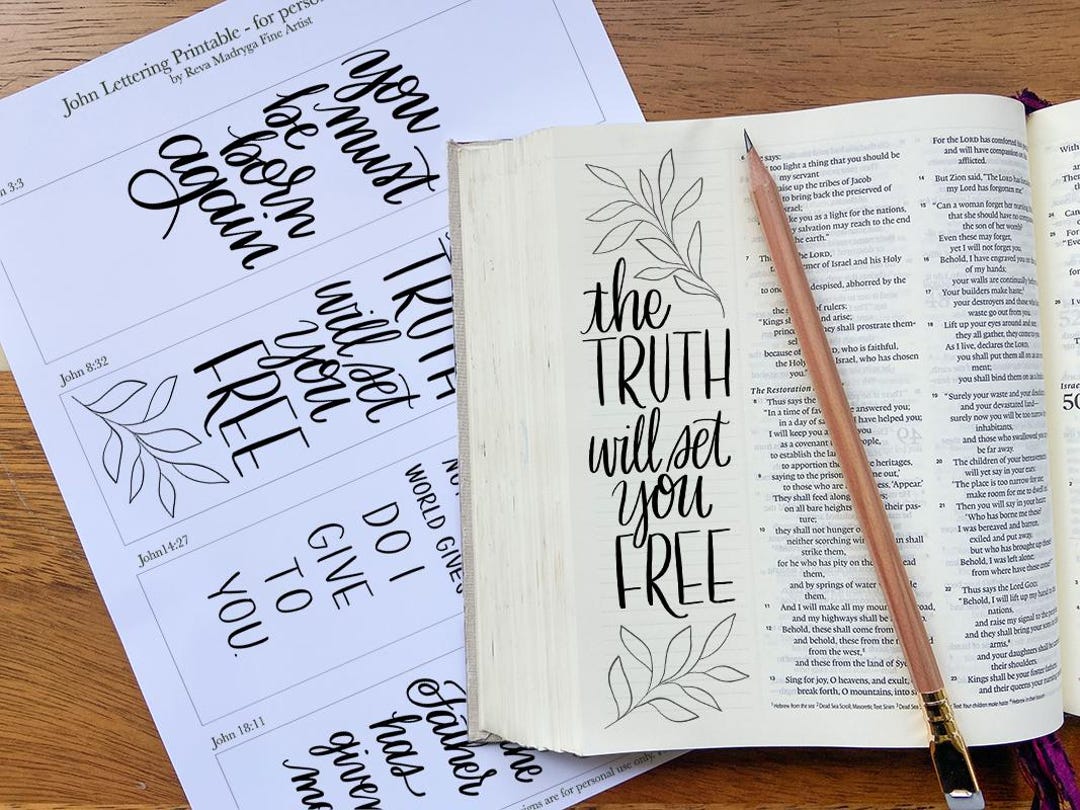 John Lettering Printable - for perso
by Reva Madryga Fine Artist
n 3:3
you
must
be
born
again
John 8:32
TRUTH
will set
you
FREE
John14:27
WORLD GIVES
DO I
GIVE
TO
YOU.
John 18:11
Father
has
given
me
igns are for personal use only.
the
TRUTH
will set
you
FREE
says:
too light a thing that you should be
my servant
aise up the tribes of Jacob
to bring back the preserved of
srael;
ke you as a light for the nations,
y salvation may reach to the end
he earth."
7 LORD,
emer of Israel and his Holy
espised, abhorred by the
of rulers:
"Kings and arise;
they shall prostrate them-
because of , who is faithful,
the Holy Israel, who has chosen
you."
The Restoration
8 Thus says the
"In a time of answered you;
in a day of I have helped you;
I will keep you you
as a covenant people,
to establish the
to apportion the heritages,
9 saying to the prison out,'
to those who are ss, 'Appear.'
They shall feed along
on all bare heights their pas-
ture;
10 they shall not hunger
neither scorching wi shall
strike them,
for he who has pity on ead
them,
and by springs of water de
them.
11 And I will make all my mou oad,
and my highways shall be
12 Behold, these shall come from
and behold, these from the
from the west,
and these from the land of Sy
13 Sing for joy, O heavens, and exult,
break forth, O mountains, into s
For the LORD has comforted
and will have compassion
afflicted.
14 But Zion said, "The LORD
my Lord has forgotten me."
15 "Can a woman forget her nursing
that she should have no
the son of her womb?
Even these may forget,
yet I will not forget you.
16 Behold, I have engraved you
of my hands;
your walls are continually
17 Your builders make haste;
your destroyers and those
waste go out from you.
18 Lift up your eyes around and see;
they all gather, they come to
As I live, declares the LORD,
you shall put them all on as
ment;
you shall bind them on as
19 "Surely your waste and your
and your devastated land—
surely now you will be too narrow
inhabitants,
and those who swallowed
be far away.
20 The children of your bereavement
will yet say in your ears:
'The place is too narrow for me;
make room for me to
21 Then you will say in your heart:
'Who has borne me these?
I was bereaved and barren,
exiled and put away,
but who has brought up these?
Behold, I was left alone;
from where have these come?'"
22 Thus says the Lord GOD:
"Behold, I will lift up my hand
nations,
and raise my signal to the peoples;
and they shall bring your sons
arms,
and your daughters shall be
their shoulders.
23 Kings shall be your foster fathers,
and their queens your nursing
With
24
25 For
26
Israel
50